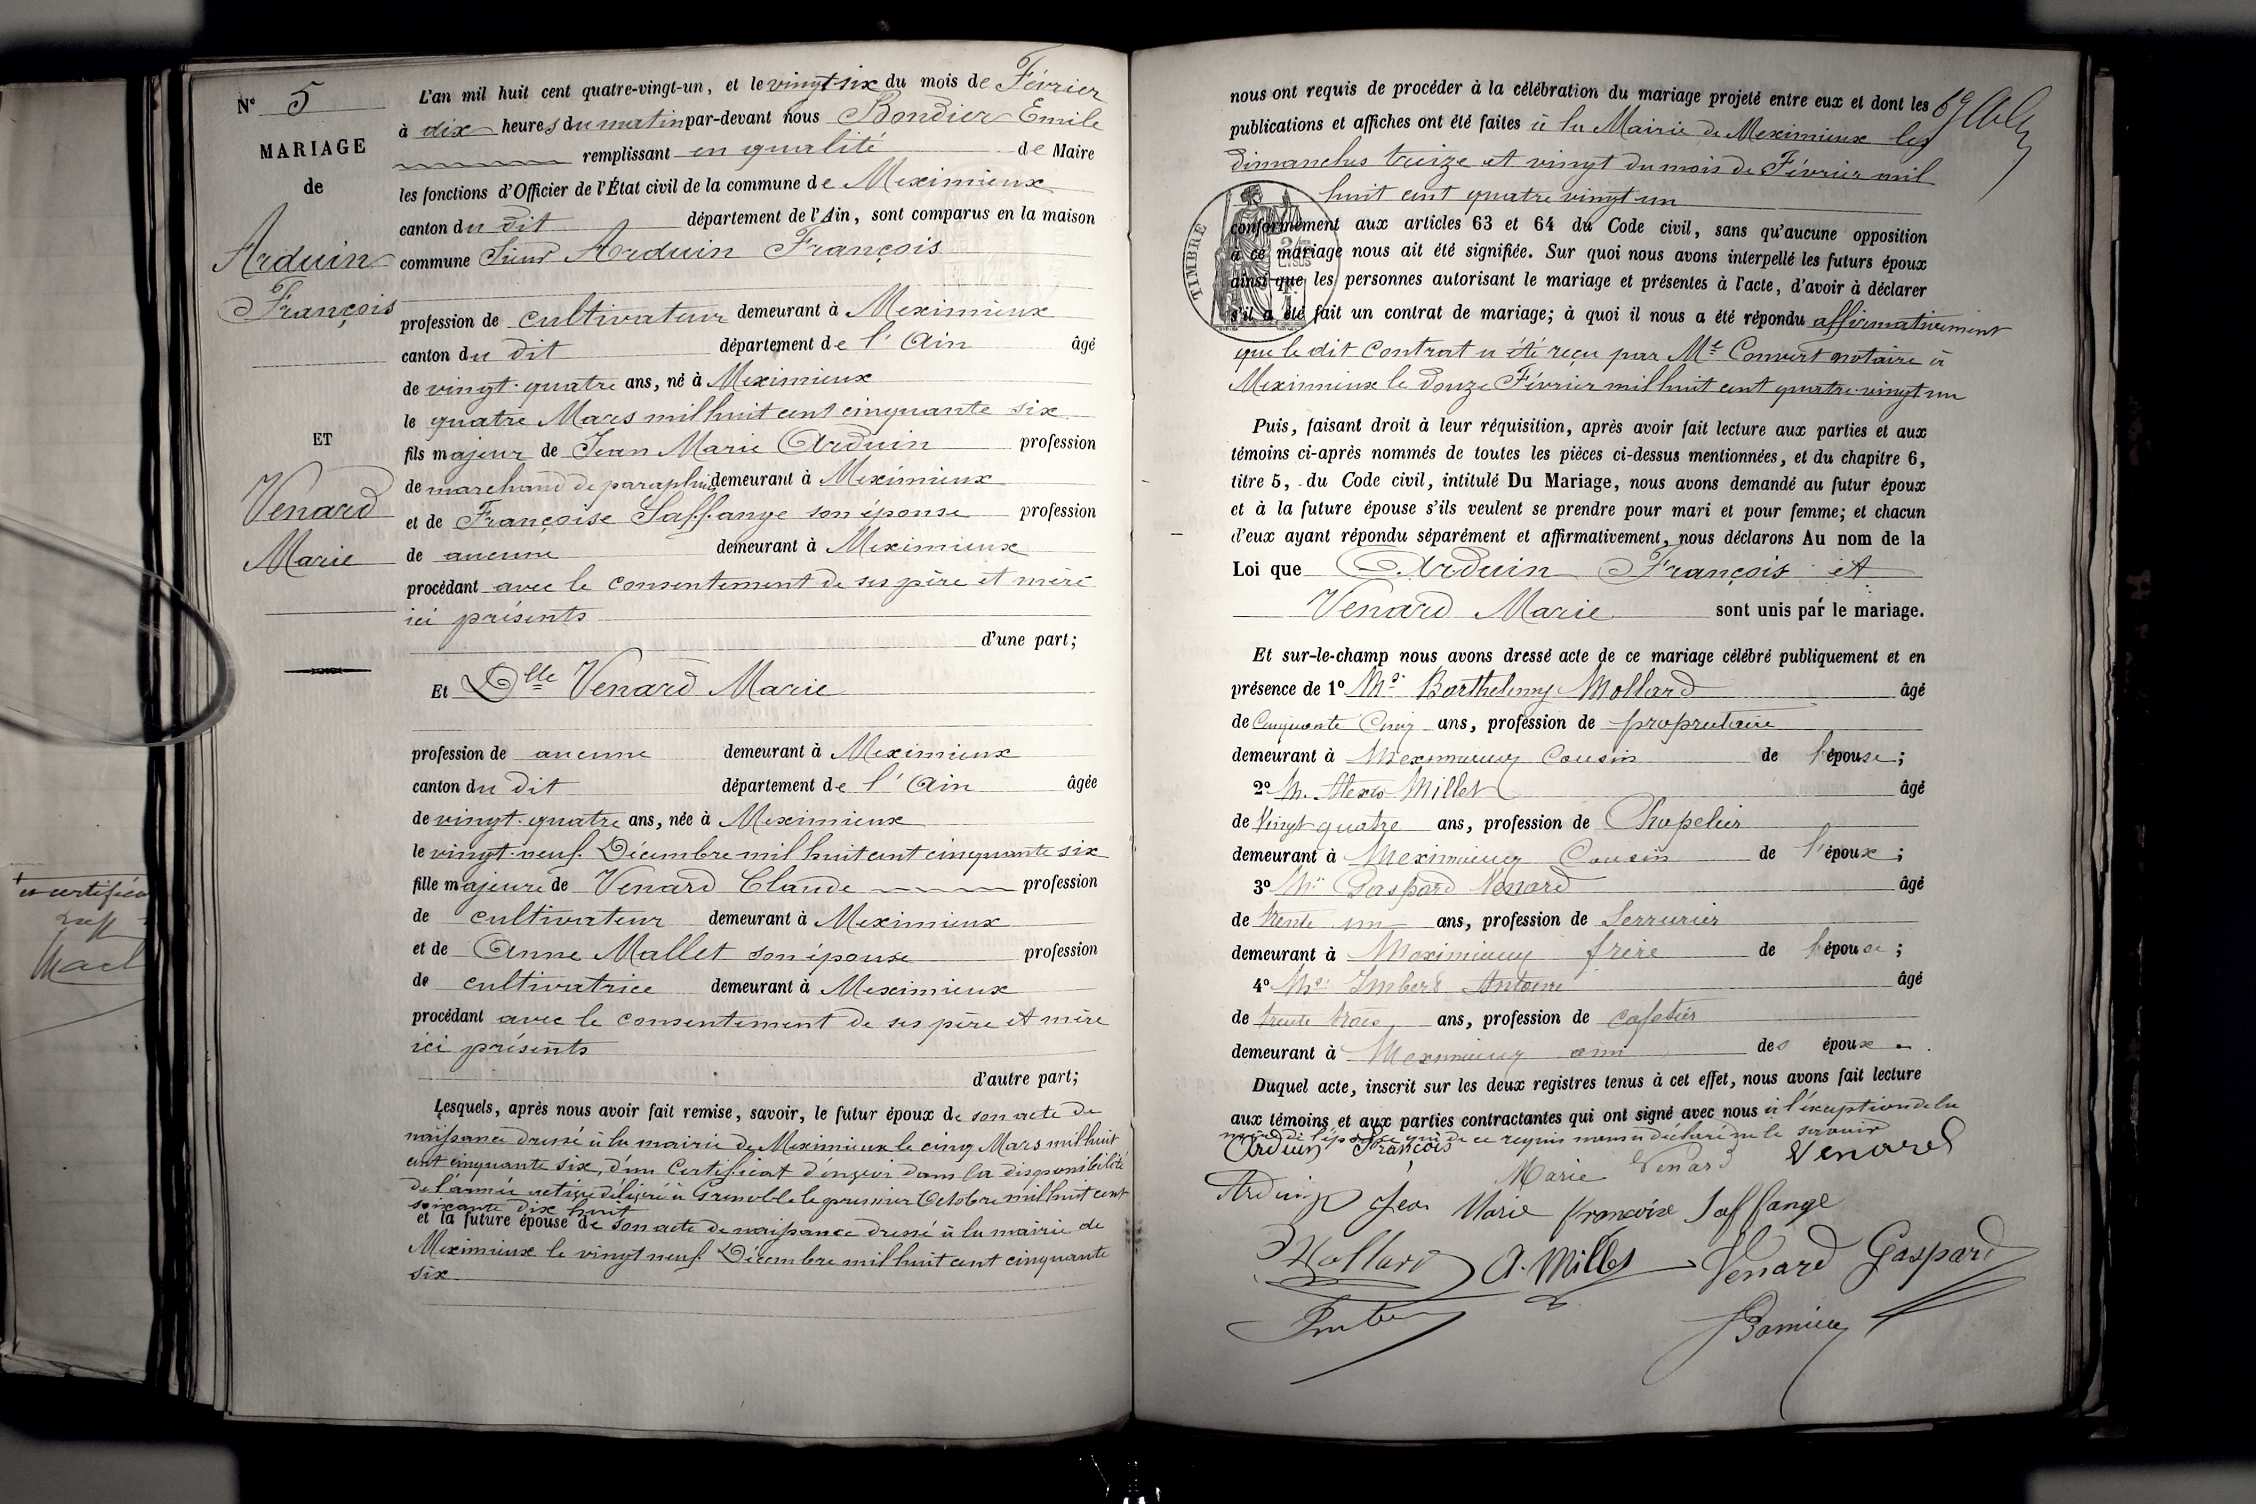 N° 5
MARIAGE
de
Arduin
François
ET
Venard
Marie
L'an mil huit cent quatre-vingt-un, et le vingt-six du mois de Février
à dix heures du matin par-devant nous Bondier Emile
remplissant en qualité de Maire
les fonctions d'Officier de l'État civil de la commune de Meximieux
canton du dit département de l'Ain, sont comparus en la maison
commune Sieur Arduin François
profession de cultivateur demeurant à Meximieux
canton du dit département de l'Ain âgé
de vingt-quatre ans, né à Meximieux
le quatre Mars mil huit cent cinquante six
fils majeur de Jean Marie Arduin profession
de marchand de parapluie demeurant à Meximieux
et de Françoise Saffange son épouse profession
de aucune demeurant à Meximieux
procédant avec le consentement de ses père et mère
ici présents
d'une part;
Et Dlle Venard Marie
profession de aucune demeurant à Meximieux
canton du dit département de l'Ain âgée
de vingt-quatre ans, née à Meximieux
le vingt-neuf Décembre mil huit cent cinquante six
fille majeure de Venard Claude profession
de cultivateur demeurant à Meximieux
et de Anne Mallet son épouse profession
de cultivatrice demeurant à Meximieux
procédant avec le consentement de ses père et mère
ici présents
d'autre part;
Lesquels, après nous avoir fait remise, savoir, le futur époux de son acte de
naissance dressé à la mairie de Meximieux le cinq Mars mil huit
cent cinquante six, d'un Certificat d'envoi dans la disponibilité
de l'armée active délivré à Grenoble le premier Octobre mil huit cent
soixante dix huit
et la future épouse de son acte de naissance dressé à la mairie de
Meximieux le vingt neuf Décembre mil huit cent cinquante
six
nous ont requis de procéder à la célébration du mariage projeté entre eux et dont les
publications et affiches ont été faites à la Mairie de Meximieux les
dimanches treize et vingt du mois de Février mil
huit cent quatre vingt un
TIMBRE
conformément aux articles 63 et 64 du Code civil, sans qu'aucune opposition
à ce mariage nous ait été signifiée. Sur quoi nous avons interpellé les futurs époux
ainsi que les personnes autorisant le mariage et présentes à l'acte, d'avoir à déclarer
s'il a été fait un contrat de mariage; à quoi il nous a été répondu affirmativement
que le dit Contrat a été reçu par Me Convert notaire à
Meximieux le douze Février mil huit cent quatre-vingt un
Puis, faisant droit à leur réquisition, après avoir fait lecture aux parties et aux
témoins ci-après nommés de toutes les pièces ci-dessus mentionnées, et du chapitre 6,
titre 5, du Code civil, intitulé Du Mariage, nous avons demandé au futur époux
et à la future épouse s'ils veulent se prendre pour mari et pour femme; et chacun
d'eux ayant répondu séparément et affirmativement, nous déclarons Au nom de la
Loi que Arduin François et
Venard Marie sont unis par le mariage.
Et sur-le-champ nous avons dressé acte de ce mariage célébré publiquement et en
présence de 1° Mr Barthelemy Mollard âgé
de Cinquante Cinq ans, profession de propriétaire
demeurant à Meximieux Cousin de l'épouse;
2° M. Alexis Millet âgé
de Vingt quatre ans, profession de Chapelier
demeurant à Meximieux Cousin de l'époux;
3° Mr Gaspard Venard âgé
de trente un ans, profession de Serrurier
demeurant à Meximieux frère de l'épouse;
4° Mr Imbert Antoine âgé
de trente trois ans, profession de cafetier
demeurant à Meximieux ami des époux.
Duquel acte, inscrit sur les deux registres tenus à cet effet, nous avons fait lecture
aux témoins et aux parties contractantes qui ont signé avec nous à l'exception de la
mère de l'épouse qui de ce requis nous a déclaré ne le savoir
Arduin François
Marie Venard Venard
Arduin Jean Marie françoise Saffange
Mollard A. Millet Venard Gaspard
Imbert